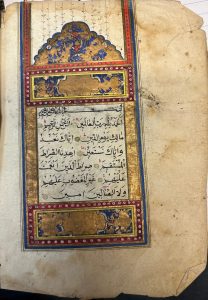 الحمد لله رب العالمين الرحمن الرحيم
مالك يوم الدين اياك نعبد
واياك نستعين اهدنا الصراط
المستقيم صراط الذين انعمت
عليهم غير المغضوب عليهم
ولا الضالين امين